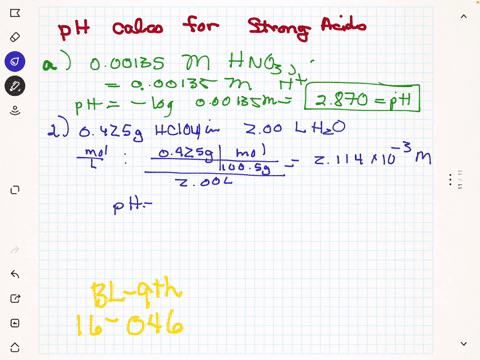 pH calcs for Strong Acids
a) 0.00135 M HNO3,
= 0.00135 M H+
pH = -log 0.00135m = 2.870 = pH
2.) 0.425g HClO4 in 2.00 L H2O
mol/L : 0.425g | mol
100.5g
2.00L
= 2.114 x 10^-3 M
pH=
BL-9th
16-046
11 / 11